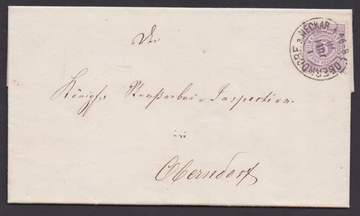 OBERNDORF a. NECKAR
Der
Königl. Straßenbau-Inspection
in
Oberndorf